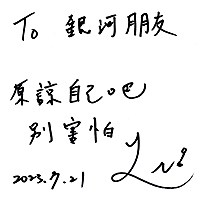 To 銀河朋友
原諒自己吧
別害怕
2023.7.21